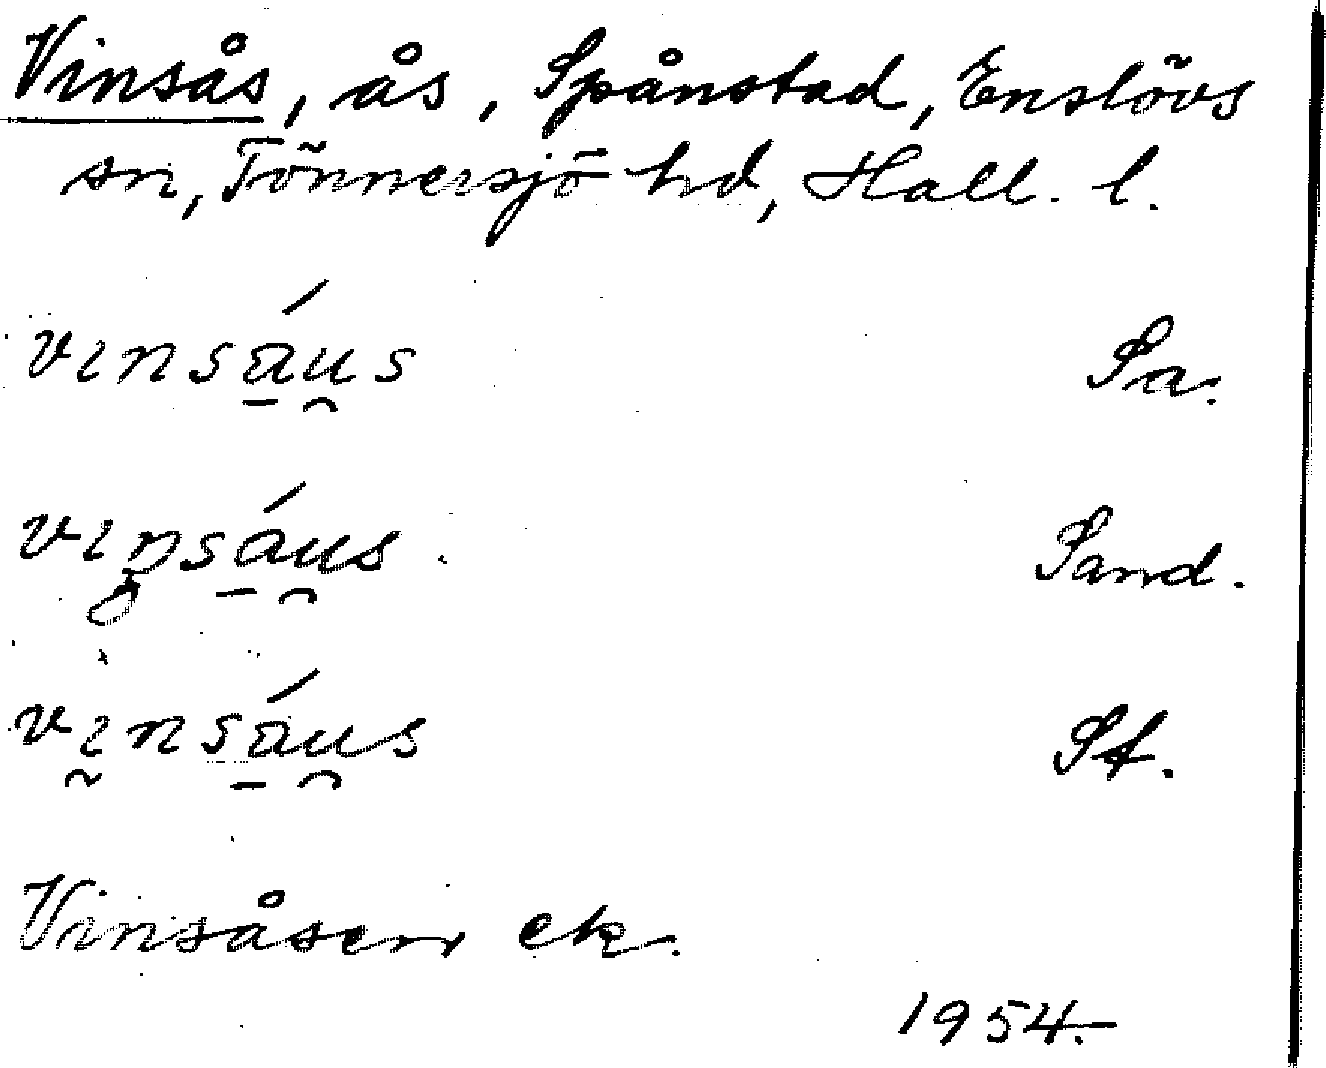 Vinsås, ås, Spånstad, Enslövs
sn, Tönnersjö hd, Hall. l.
vɪnsa̱u̯s Sa.
vɪn̥sa̱u̯s Sand.
vɪ̰nsa̱u̯s St.
Vinsåsen ek.
1954.